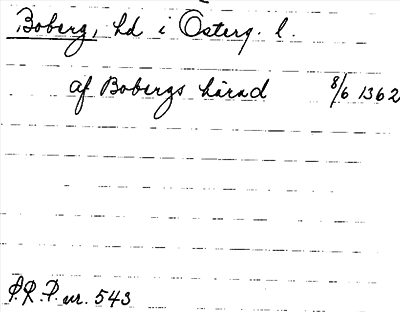 Boberg, hd i Österg. l.
af Bobergs härad 8/6 1362
P.R.P. nr. 543